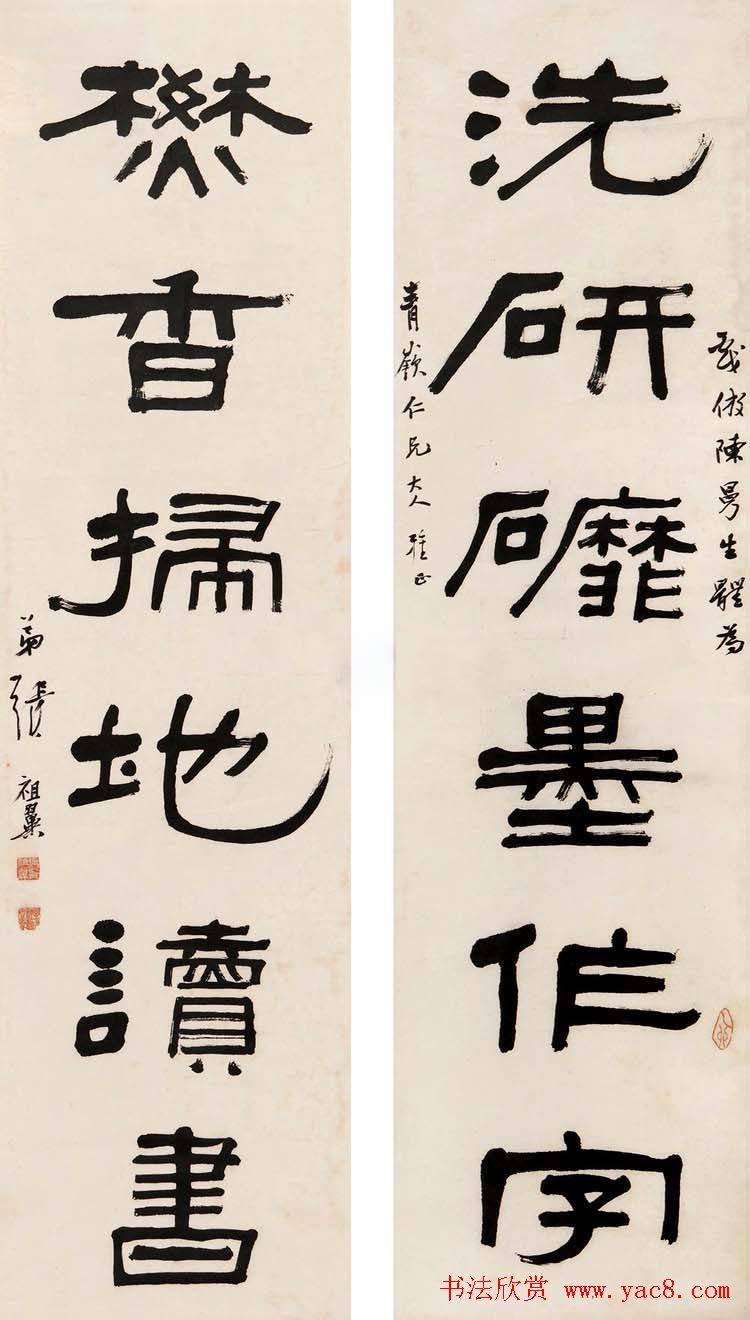 倣陳曼生體為
洗研䃺墨作字
青 仁兄大人雅正
焚香掃地讀書
弟張祖翼
书法欣赏 www.yac8.com